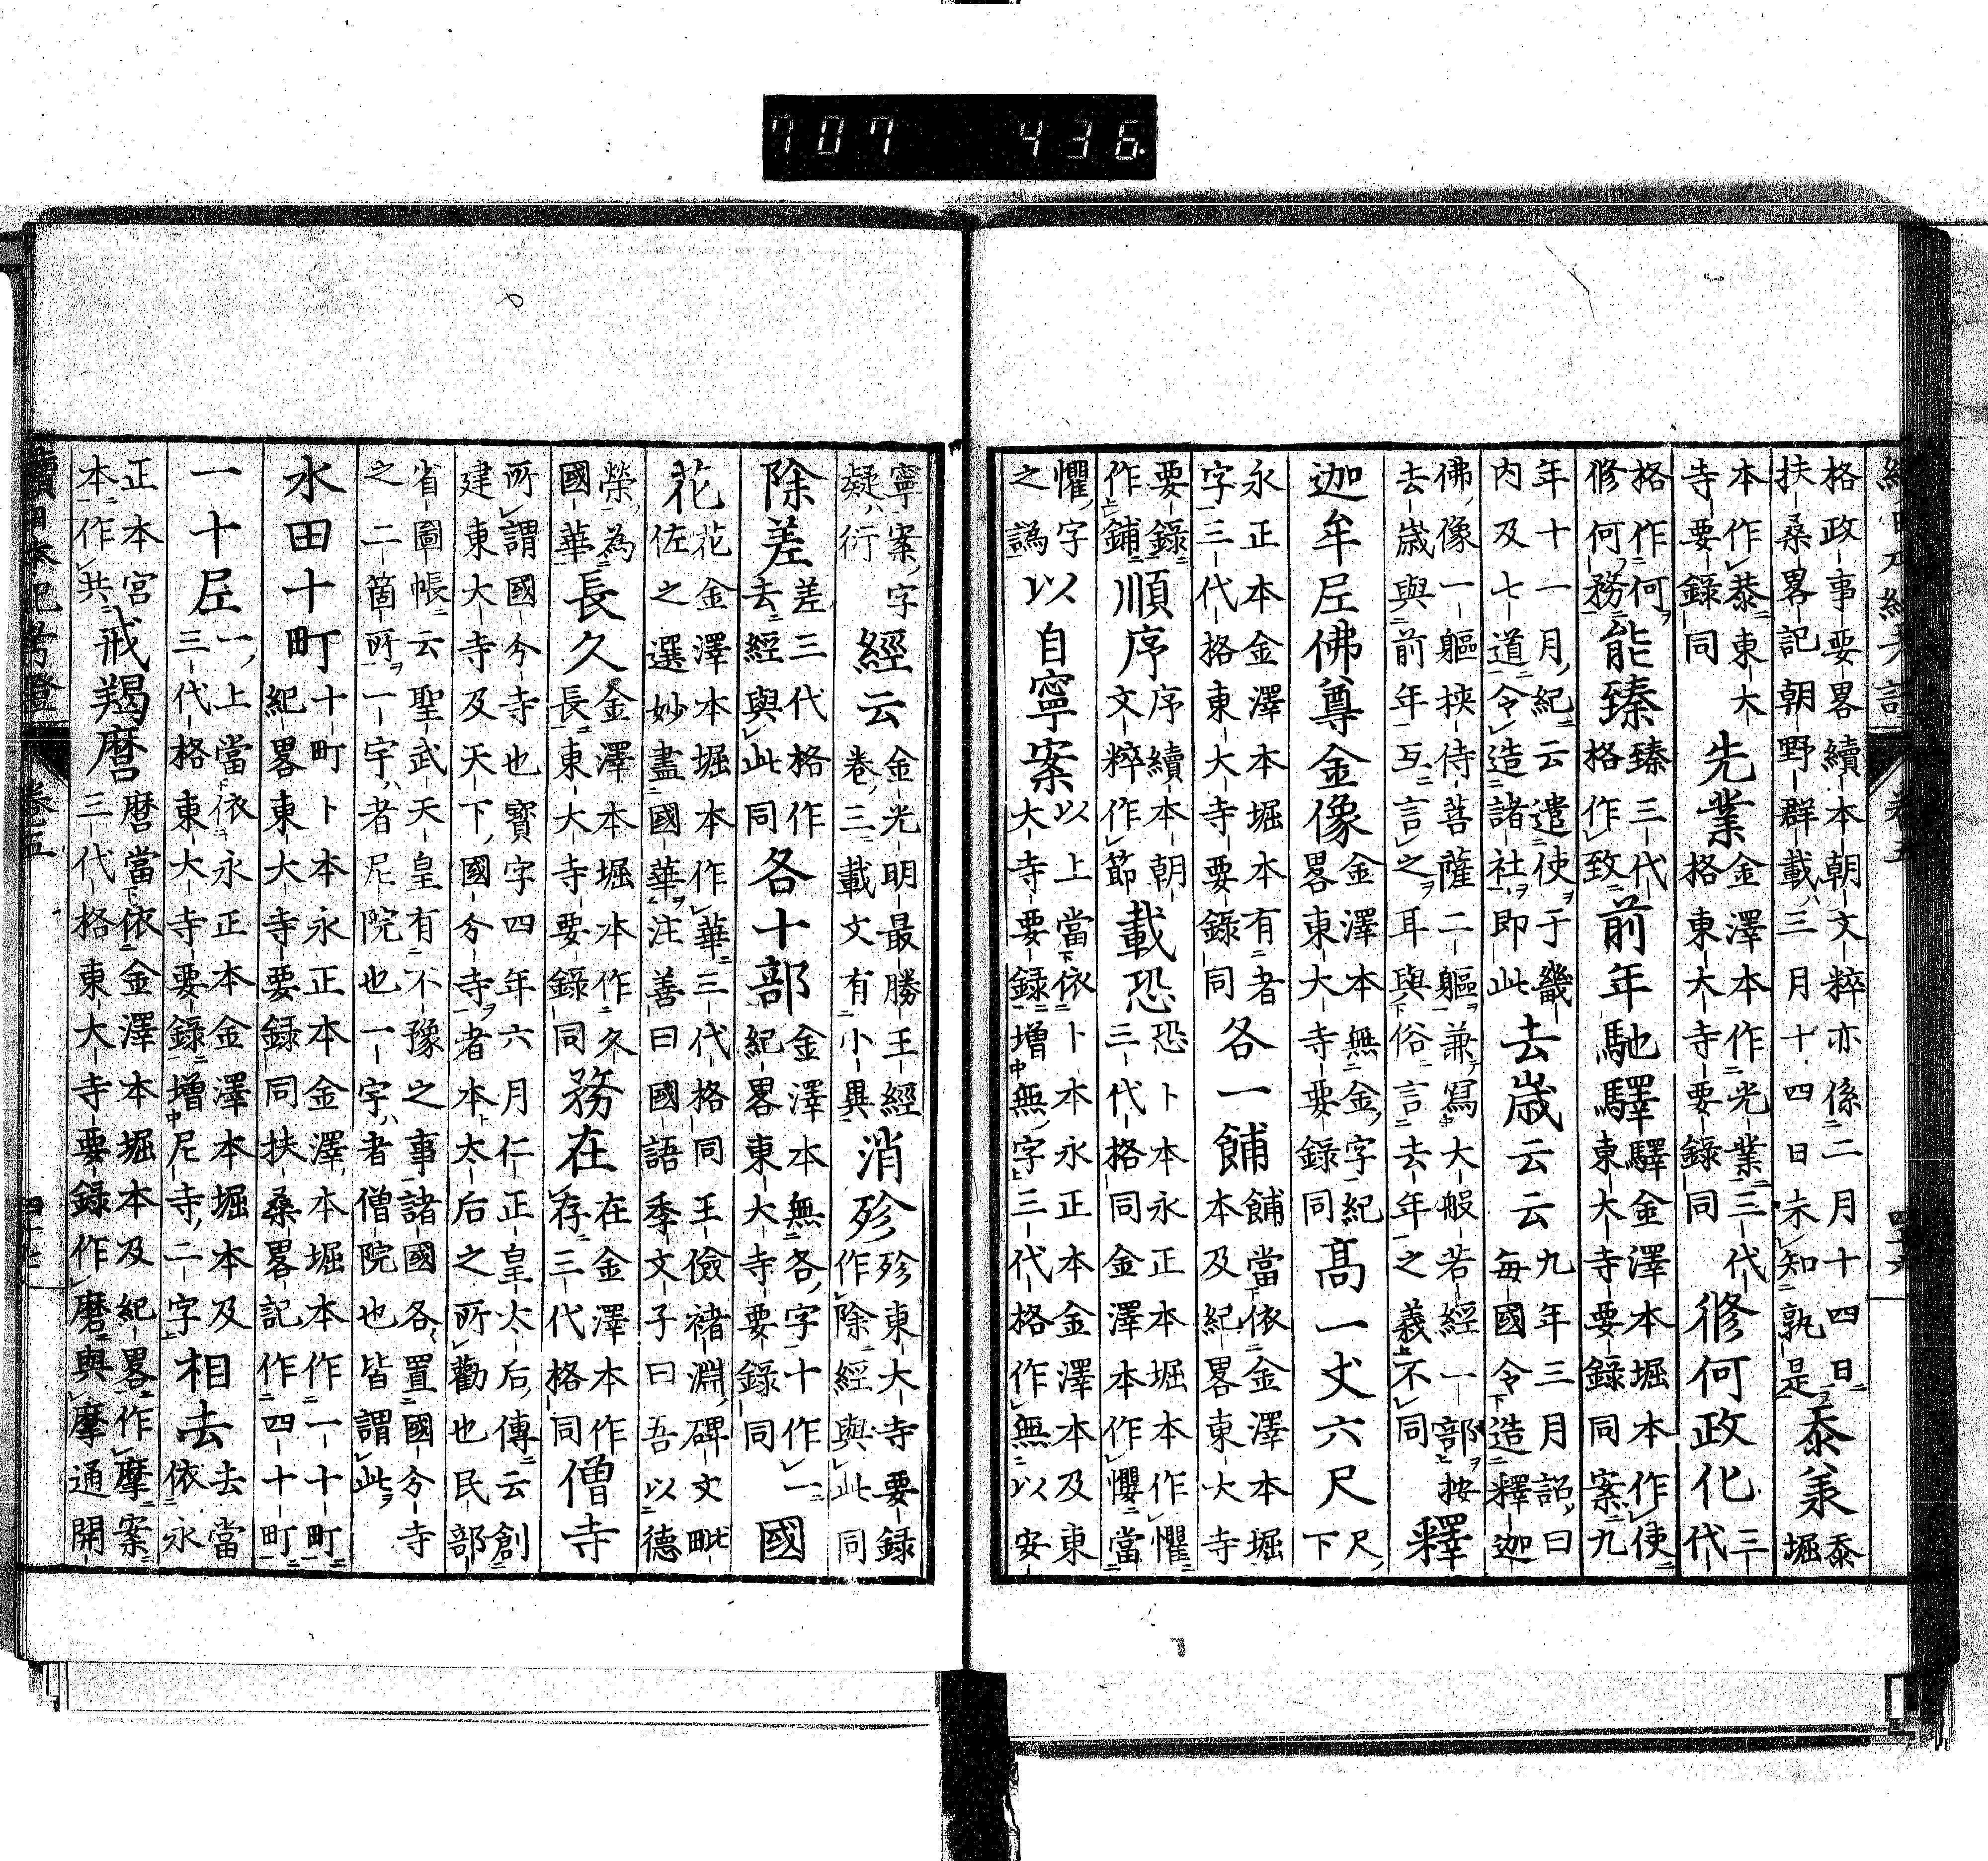 707 436.
續日本紀考證 卷五 四十六
格政事要畧續本朝文粹亦係二月十四日
扶桑畧記朝野群載三月十四日未知孰是 忝美 忝堀
本作恭東大寺要錄同 先業 金澤本作光業三代格東大寺要錄同 修何政化 三代
格作何修何務 能臻 臻三代格作致 前年馳驛 驛金澤本堀本作使東大寺要錄同案九
年十一月紀云遣使于畿內及七道令造諸社即此 去歲云云 九年三月詔曰每國令造釋迦
佛像一軀挾侍菩薩二軀兼寫大般若經一部按去歲與前年互言之耳與俗言去年之義不同 釋
迦牟尼佛尊金像 金澤本無金字紀畧東大寺要錄同 高一丈六尺 尺下
永正本金澤本堀本有者字三代格東大寺要錄同 各一餔 餔當依金澤本堀本及紀畧東大寺
要錄作鋪 順序 序續本朝文粹作節 載恐 恐卜本永正本堀本作懼三代格同金澤本作懼當
懼字之譌 以自寧案 以上當依卜本永正本金澤本及東大寺要錄增無字三代格作無以安
寧案字疑衍 經云 金光明最勝王經卷三載文有小異 消殄 殄東大寺要錄作除經與此同
除差 差三代格作去經與此同 各十部 金澤本無各字十作一紀畧東大寺要錄同 國
花 花金澤本堀本作華三代格同王儉褚淵碑文毗佐之選妙盡國華注善曰國語季文子曰吾以德
榮為國華 長久 金澤本堀本作久長東大寺要錄同 務在 在金澤本作存三代格同 僧寺
所謂國今寺也寶字四年六月仁正皇太后傳云創建東大寺及天下國分寺者本太后之所勸也民部
省圖帳云聖武天皇有不豫之事諸國各置國分寺之二箇所一宇者尼院也一宇者僧院也皆謂此
水田十町 十町卜本永正本金澤本堀本作一十町紀畧東大寺要錄同扶桑畧記作四十町
一十尼 一上當依永正本金澤本堀本及三代格東大寺要錄增尼寺二字 相去 去當依永
正本宮本作共 戒羯麿 麿當依金澤本堀本及紀畧作摩案三代格東大寺要錄作磨與摩通開
續日本紀考證 卷五 四十七